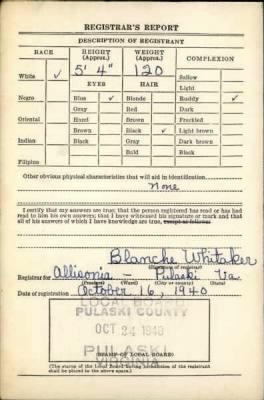 REGISTRAR'S REPORT
DESCRIPTION OF REGISTRANT
RACE HEIGHT (Approx.) WEIGHT (Approx.) COMPLEXION
White ✓ 5' 4" 120 Sallow
Light
EYES HAIR
Negro Blue ✓ Blonde Ruddy ✓
Gray Red Dark
Oriental Hazel Brown Freckled
Brown Black ✓ Light brown
Indian Black Gray Dark brown
Bald Black
Filipino
Other obvious physical characteristics that will aid in identification
None
I certify that my answers are true; that the person registered has read or has had
read to him his own answers; that I have witnessed his signature or mark and that
all of his answers of which I have knowledge are true, except as follows:
Blanche Whitaker
(Signature of registrar)
Registrar for Allisonia - Pulaski Va.
(Precinct) (Ward) (City or county) (State)
Date of registration October 16, 1940
LOCAL BOARD
PULASKI COUNTY
OCT 24 1940
PULASKI
VIRGINIA
(STAMP OF LOCAL BOARD)
(The stamp of the Local Board having jurisdiction of the registrant
shall be placed in the above space.)